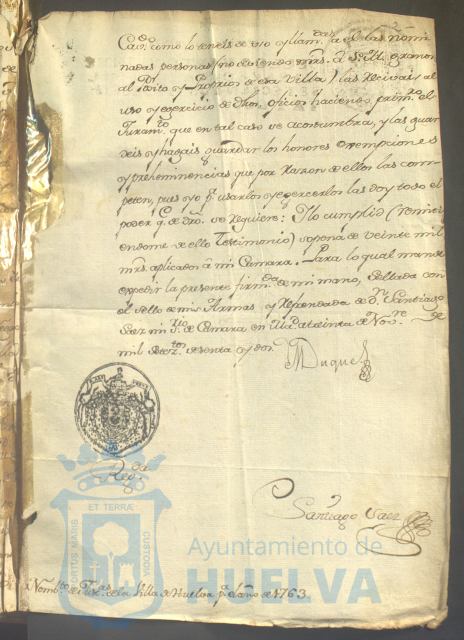 Cavdo. como lo teneis de uso y llamdas. a el las nomi
nadas personas (no deviendo mrs. á S. M. ó gravamen
al Posito y Propios de esa Villa) las Recivais al
uso y egercicio de dhos. oficios haciendo primo. el
Juramto. que en tal caso se acostumbra, y las guar
deis y hagais guardar los honores exempciones
y preheminencias que por Razon de ellos las com-
peten, pues yo pa. usarlos y egercerlos las doy todo el
poder q. de dro. se Requiere: Y lo cumplid (remiti
endome de ello Testimonio) so pena de veinte mil
mrs. aplicados á mi Camara. Para lo qual mandé
expedir la presente firmda. de mi mano, Sellada con
el sello de mis Armas y Refrendada de Dn. Santiago
Saez mi Srio. de Camara en Madd. a treinta de Nove. de
mil Setezos. sesenta y dos.
M Duque
Regda.
Santiago Saez
ET TERRÆ
PORTUS MARIS
CUSTODIA
Ayuntamiento de
HUELVA
Nombto. de Justas. de la Villa de Huelva pa. el año de 1763.